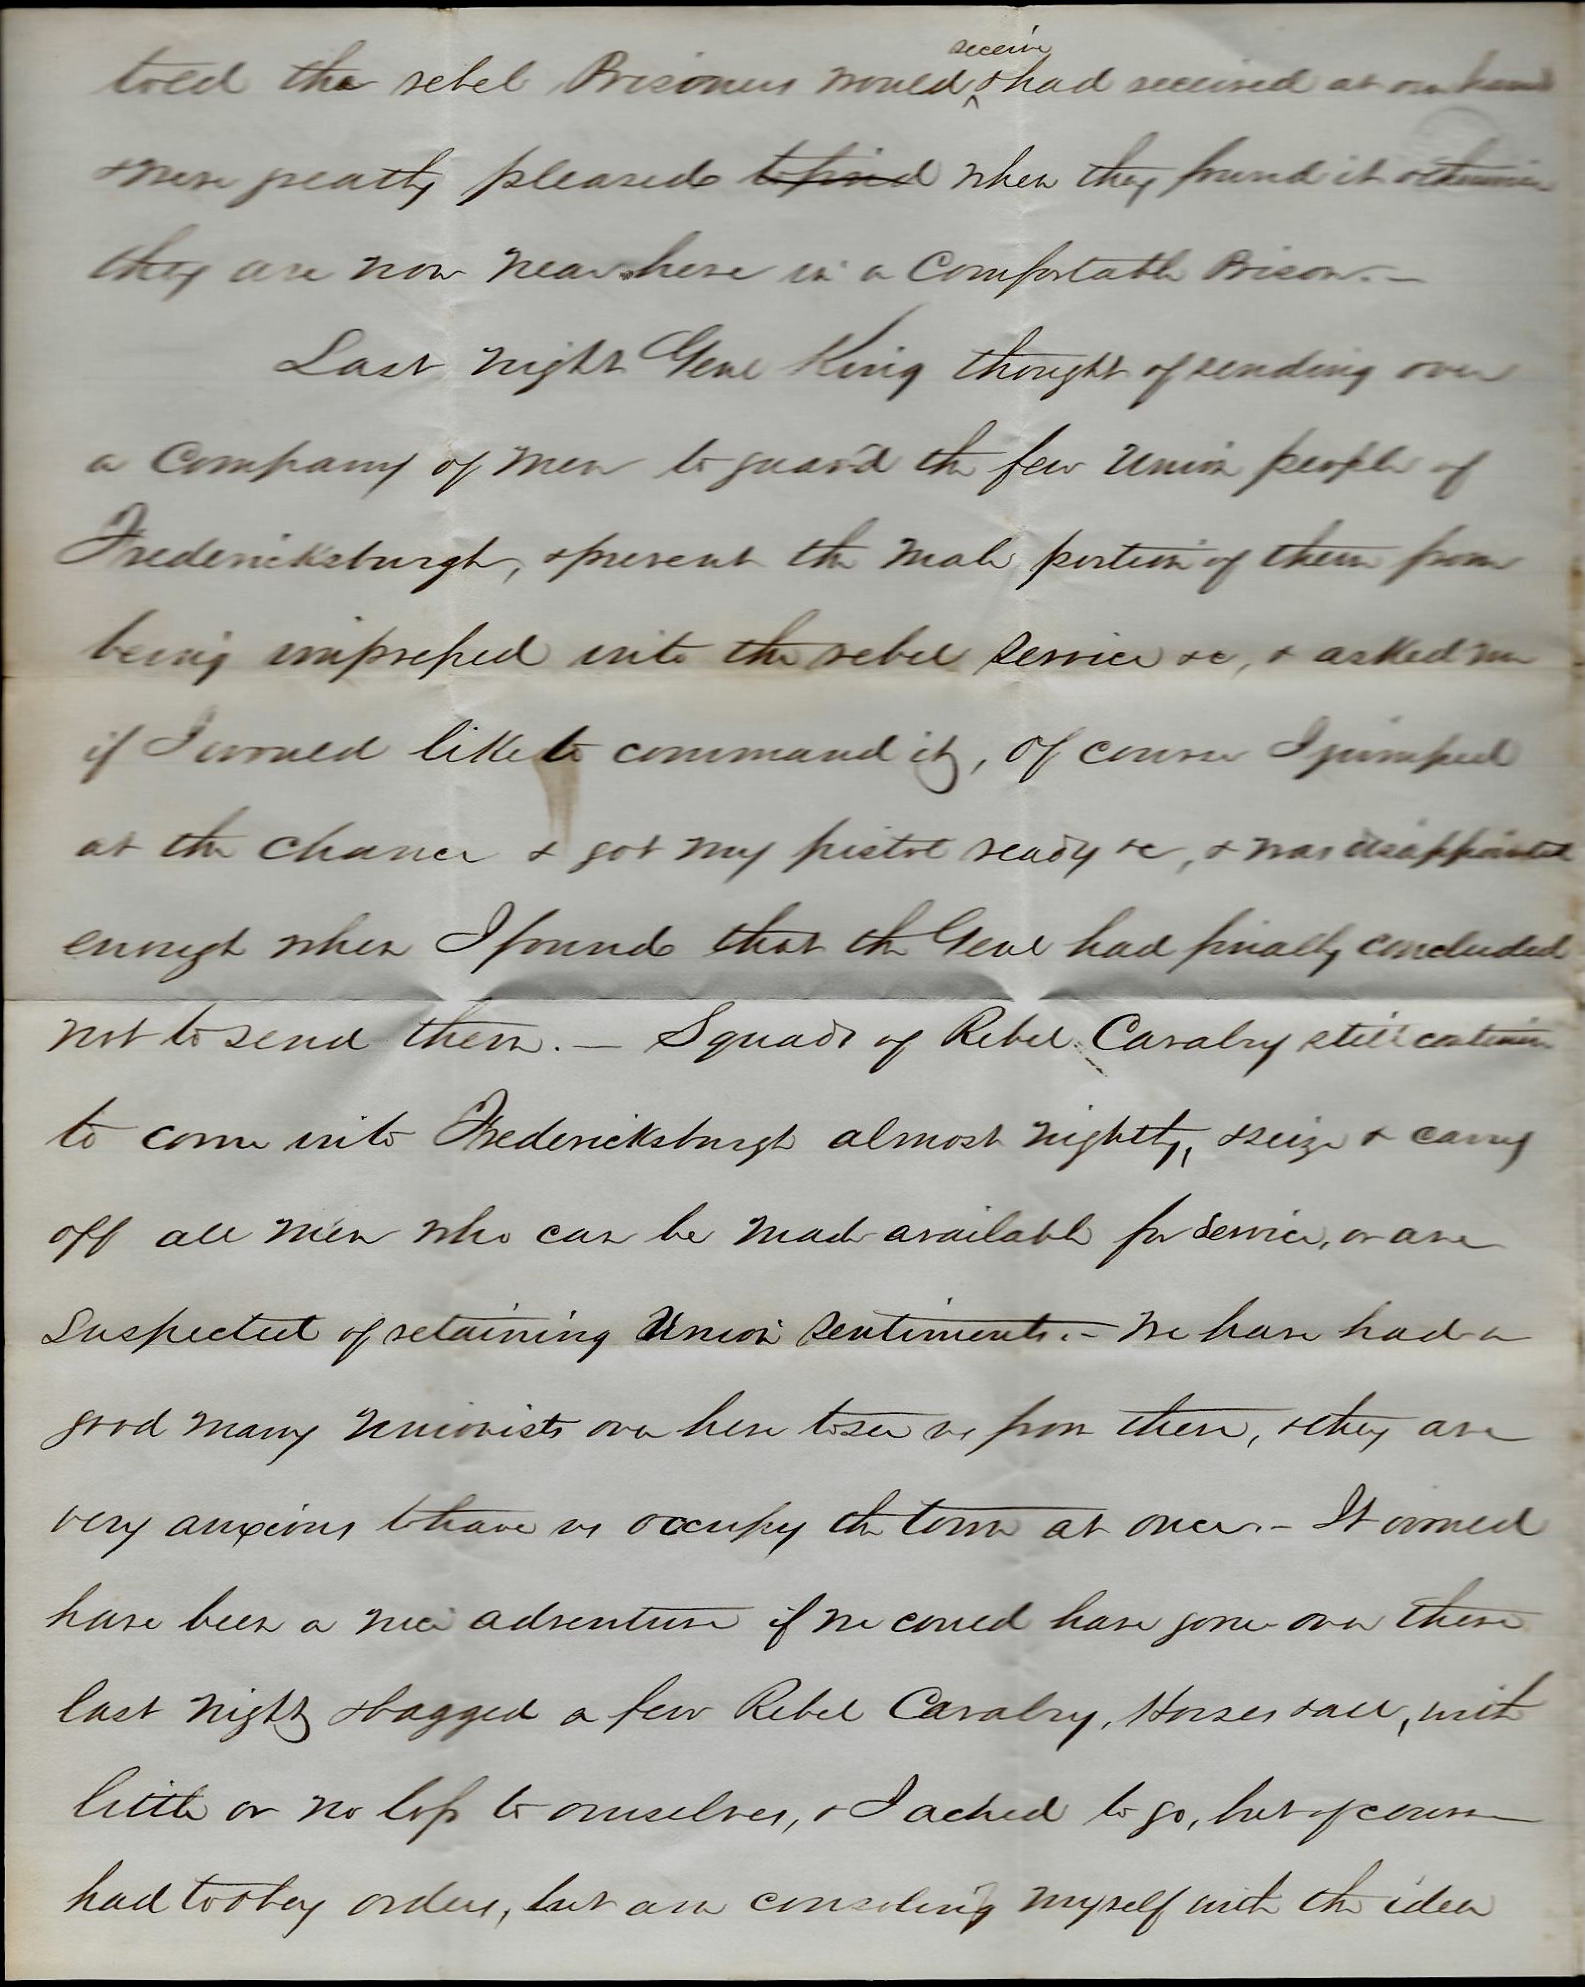 told the rebel Prisoners would receive & had received at our hands
& were greatly pleased to find when they found it otherwise
they are now near here in a Comfortable Prison. —
Last night Genl King thought of sending over
a Company of Men to guard the few Union people of
Fredericksburgh, & prevent the Male portion of them from
being impressed into the rebel service &c, & asked me
if I would like to command it, Of course I jumped
at the chance & got my pistol ready &c, & was disappointed
enough when I found that the Genl had finally concluded
not to send them. — Squads of Rebel Cavalry still continue
to come into Fredericksburgh almost nightly, & seize & carry
off all men who can be made available for service, or are
Suspected of retaining Union Sentiments. — We have had a
good many Unionists over here to see us from there, & they are
very anxious to have us occupy the town at once. — It would
have been a nice adventure if we could have gone over there
last night & bagged a few Rebel Cavalry, Horses & all, with
little or no loss to ourselves, & I ached to go, but of course
had to obey orders, but am consoling myself with the idea